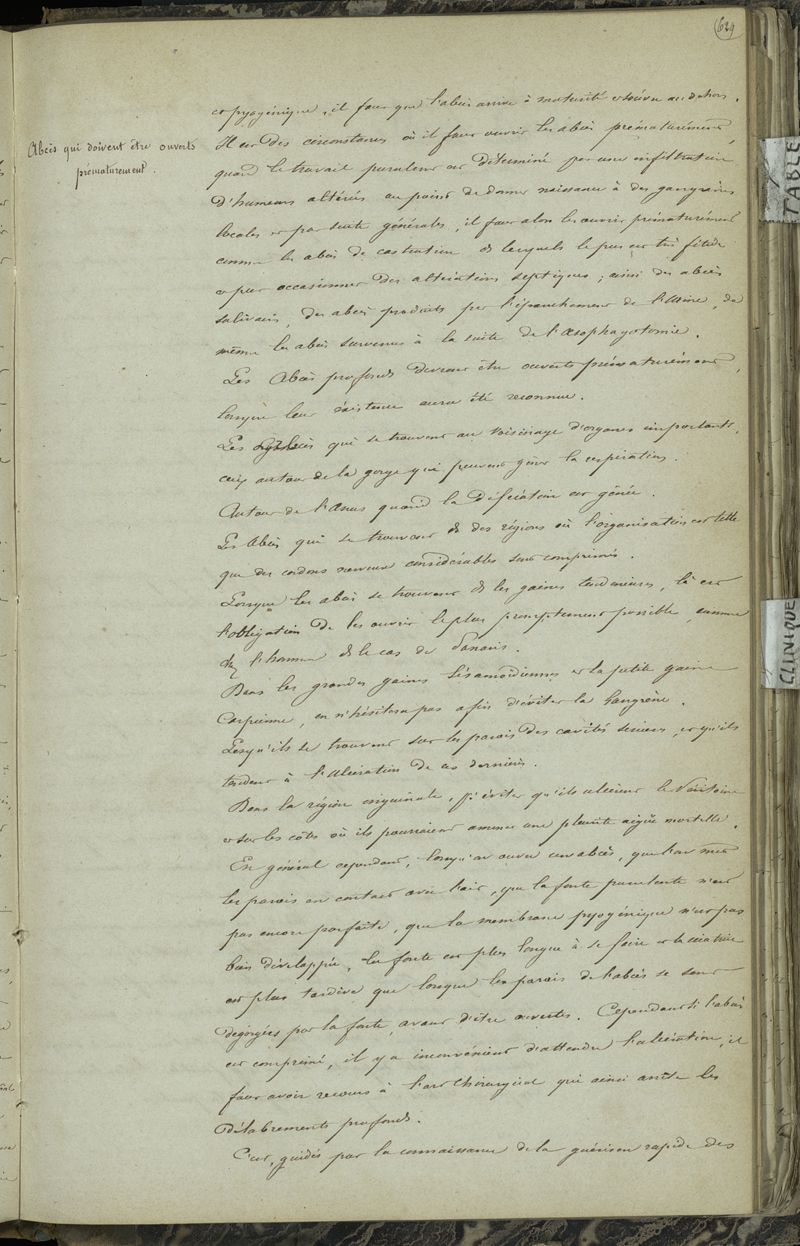 629
et pyogénique, il faut que l'abcès arrive à maturité et s'ouvre au dehors.
Abcès qui doivent être ouverts
prématurement.
Il est des circonstances où il faut ouvrir les abcès prématurément,
quand le travail purulent est déterminé par une infiltration
d'humeurs altérées au point de donner naissance à des gangrènes
locales et par suite générales, il faut alors les ouvrir prématurément
comme les abcès de castration ds lesquels le pus est très fétide
et peut occasionner des altérations septiques; ainsi des abcès
salivaires, des abcès produits par l'épanchement de l'urine, de
même les abcès survenus à la suite de l'œsophagotomie.
Les Abcès profonds devront être ouverts prématurément,
lorsque leur existence aura été reconnue.
Les abcès qui se trouvent au voisinage d'organes importants,
ceux autour de la gorge qui peuvent gêner la respiration.
Autour de l'Anus quand la défécation est gênée.
Les Abcès qui se trouvent ds des régions où l'organisation est telle
que des cordons nerveux considérables sont comprimés.
Lorsque les abcès se trouvent ds les gaines tendineuses, là est
l'obligation de les ouvrir le plus promptement possible, comme
chez l'homme ds le cas de Panaris.
Dans les grandes gaines sésamoïdiennes et la petite gaine
Carpienne, on n'hésitera pas afin d'éviter la Gangrène.
Lorsqu'ils se trouvent sur les parois des cavités séreuses, et qu'ils
tendent à l'ulcération de ces dernières.
Dans la région inguinale, pr éviter qu'ils ulcèrent le Péritoine
et sur les côtes où ils pourraient amener une pleurite aiguë mortelle.
En général cependant, lorsqu'on ouvre un abcès, que l'on met
les parois en contact avec l'air, que la fonte purulente n'est
pas encore parfaite, que la membrane pyogénique n'est pas
bien développée, la fonte est plus longue à se faire et la cicatrice
est plus tardive que lorsque les parois de l'abcès se sont
dégorgées par la fonte, avant d'être ouvertes. Cependant si l'abcès
est comprimé, il y a inconvénient d'attendre l'ulcération, il
faut avoir recours à l'art chirurgical qui ainsi arrête les
Délabrements profonds.
C'est, guidés par la connaissance de la guérison rapide des
TABLE
CLINIQUE